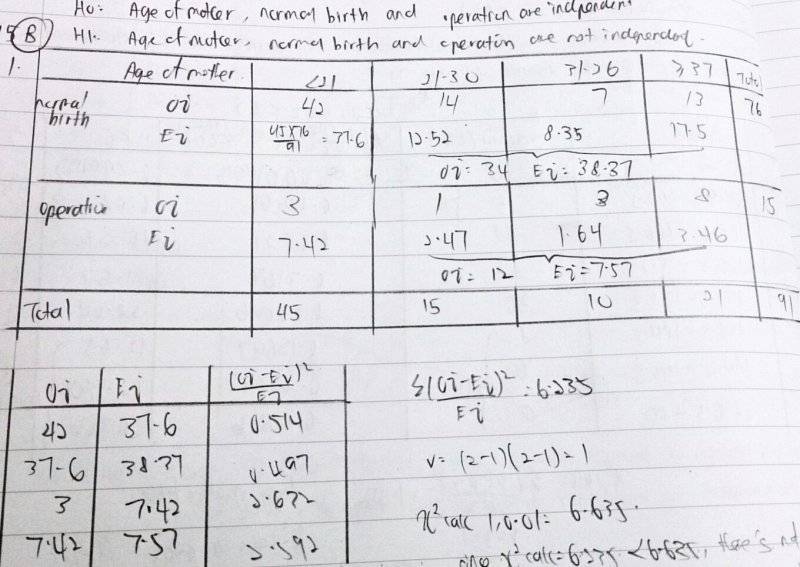 H0: Age of mother, normal birth and operation are independent
5 B H1: Age of mother, normal birth and operation are not independent.
1. Age of mother <21 21-30 31-36 ≥37 Total
normal birth Oi 42 14 7 13 76
Ei 45×76/91 = 37.6 12.52 8.35 17.5
Oi = 34 Ei = 38.37
operation Oi 3 1 3 8 15
Ei 7.42 2.47 1.64 3.46
Oi = 12 Ei = 7.57
Total 45 15 10 21 91
Oi Ei (Oi-Ei)²/Ei
42 37.6 0.514
37.6 38.37 0.497
3 7.42 2.632
7.42 7.57 2.592
Σ(Oi-Ei)²/Ei = 6.235
v = (2-1)(2-1) = 1
χ² calc 1, 0.01 = 6.635.
χ² calc = 6.235 < 6.635, there's